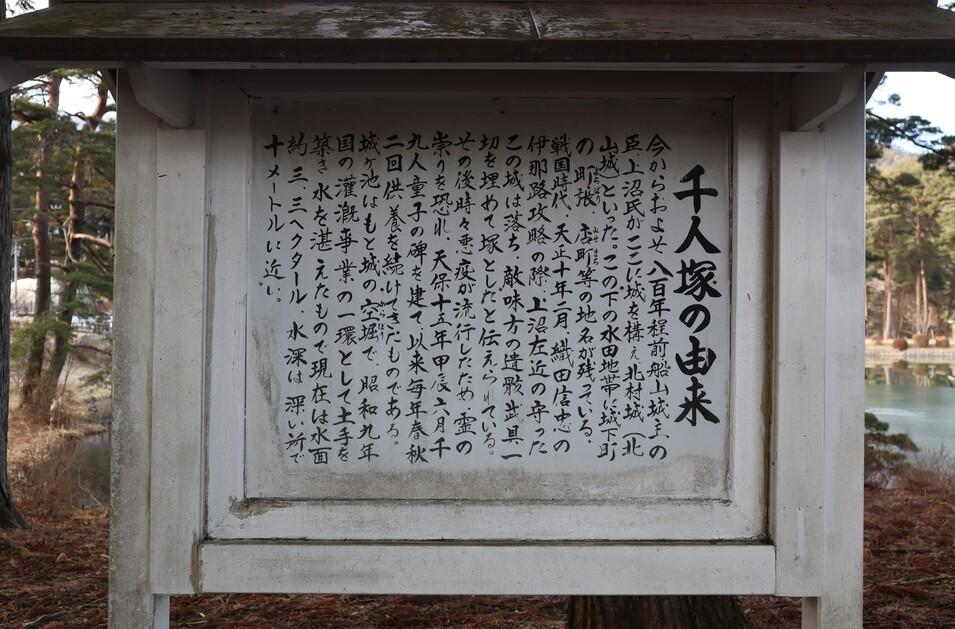 千人塚の由来
今からおよそ八百年程前船山城主の
臣上沼氏がここに城を構え北村城（北
山城）といった。この下の水田地帯に城下町
の町張、店町等の地名が残っている。
戦国時代、天正十年二月、織田信忠の
伊那路攻略の際、上沼左近の守った
この城は落ち、敵味方の遺骸武具一
切を埋めて塚としたと伝えられている。
その後時々悪疫が流行したため霊の
祟りを恐れ、天保十五年甲辰六月千
九人童子の碑を建て、以来毎年春秋
二回供養を続けてきたものである。
城ヶ池はもと城の空堀で、昭和九年
国の灌漑事業の一環として土手を
築き水を湛えたもので現在は水面
約三、三ヘクタール、水深は深い所で
十メートルに近い。